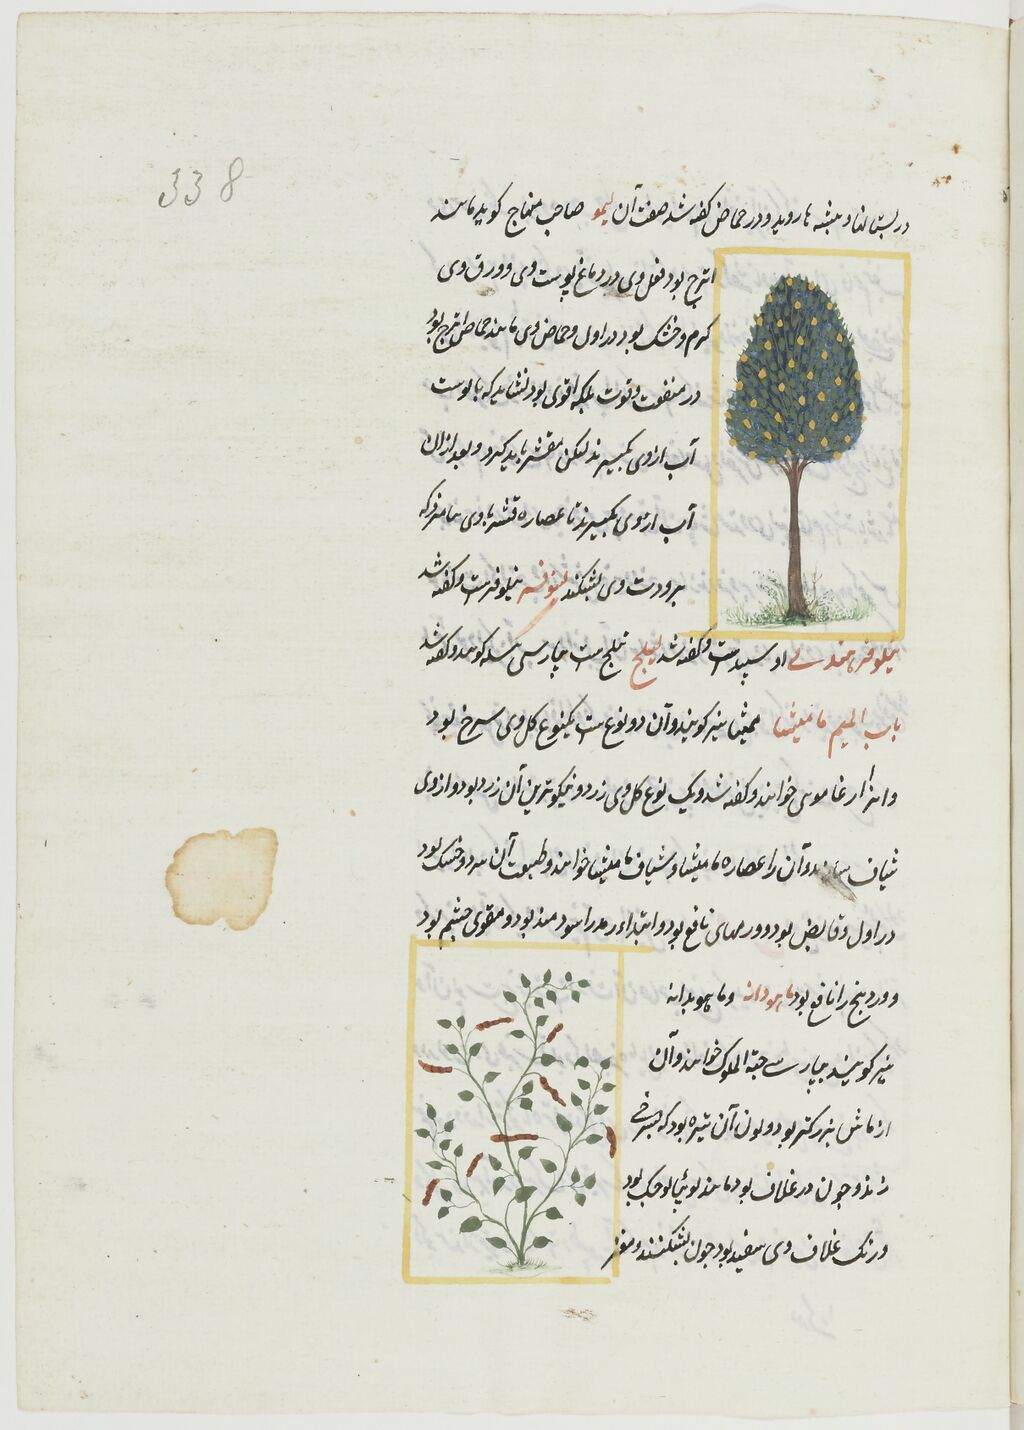 338
در بستانها و بیشه ها روید و در حماض گفته شد صفت آن لیمو صاحب منهاج گوید مانند
اترج بود فعل وی در دماغ پوست وی و ورق وی
گرم و خشک بود در اول و حماض وی مانند حماض اترج بود
در منفعت و قوت بلکه اقوی بود نشاید که با پوست
آب از وی بگیرند لیکن مقشر باید کرد و بعد از ان
آب از وی بگیرند تا عصاره قشر با وی نیامیزد که
برودت وی بشکند لینوفر نیلوفرست و گفته شد
نیلوفر هندی او سپیدست و گفته شد لیلج نیلج ست بپارسی نیله گویند و گفته شد
باب المیم مامیثا ممیثا نیز گویند و آن دو نوع ست یکنوع گل وی سرخ بود
و انرا ارغاموسی خوانند و گفته شد و یک نوع گل وی زرد و نیکوترین آن زرد بود و از وی
شیاف سازند و آن را عصاره مامیثا و شیاف مامیثا خوانند و طبیعت آن سرد و خشک بود
در اول و قابض بود و ورمهای نافع بود و ابتداء رمد را سودمند بود و مقوی چشم بود
و وردینج را نافع بود ماهودانه و ماهوبدانه
نیز گویند بپارسی حبة الملوک خوانند و آن
از ماش بزرگتر بود و لون آن تیره بود که بسرخی
زند و چون در غلاف بود مانند لوبیا کوچک بود
و رنگ غلاف وی سفید بود چون بشکنند و مغز